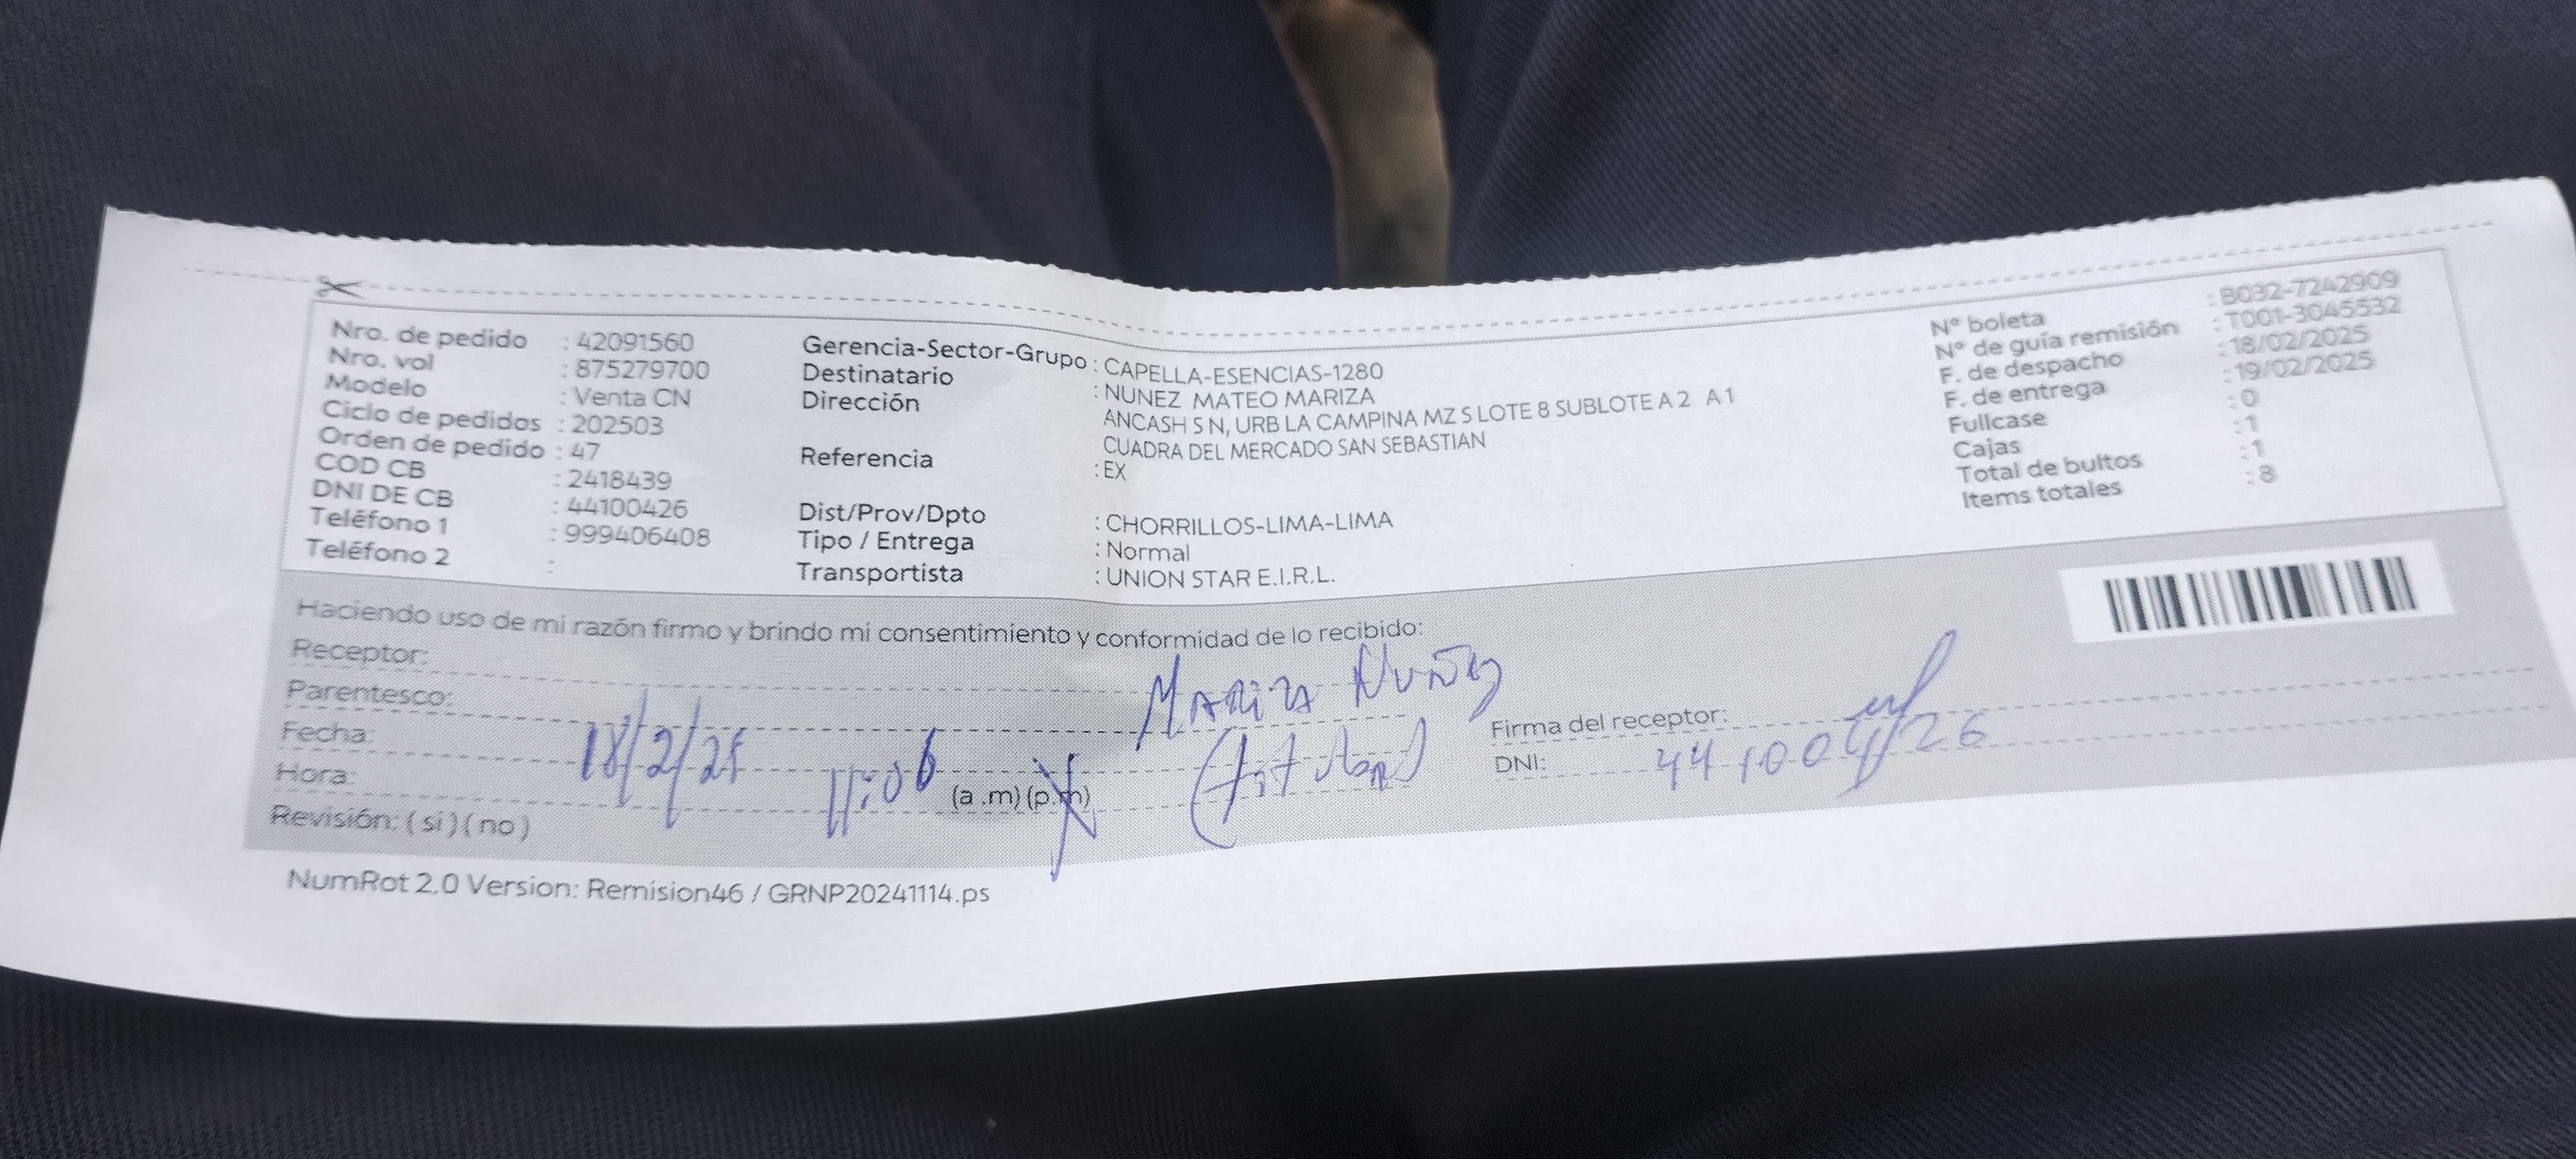 Nro. de pedido : 42091560
Nro. vol : 875279700
Modelo : Venta CN
Ciclo de pedidos : 202503
Orden de pedido : 47
COD CB : 2418439
DNI DE CB : 44100426
Teléfono 1 : 999406408
Teléfono 2 :
Gerencia-Sector-Grupo : CAPELLA-ESENCIAS-1280
Destinatario : NUNEZ MATEO MARIZA
Dirección : ANCASH S N, URB LA CAMPINA MZ S LOTE 8 SUBLOTE A 2 A 1
CUADRA DEL MERCADO SAN SEBASTIAN
Referencia : EX
Dist/Prov/Dpto : CHORRILLOS-LIMA-LIMA
Tipo / Entrega : Normal
Transportista : UNION STAR E.I.R.L.
N° boleta : B032-7242909
N° de guía remisión : T001-3045532
F. de despacho : 18/02/2025
F. de entrega : 19/02/2025
Fullcase : 0
Cajas : 1
Total de bultos : 1
Items totales : 8
Haciendo uso de mi razón firmo y brindo mi consentimiento y conformidad de lo recibido:
Receptor: Mariza Nuñez
Parentesco: (titular)
Fecha: 18/2/25
Hora: 11:06 (a .m) (p.m)
Revisión: ( si ) ( no )
Firma del receptor:
DNI: 44100426
NumRot 2.0 Version: Remision46 / GRNP20241114.ps